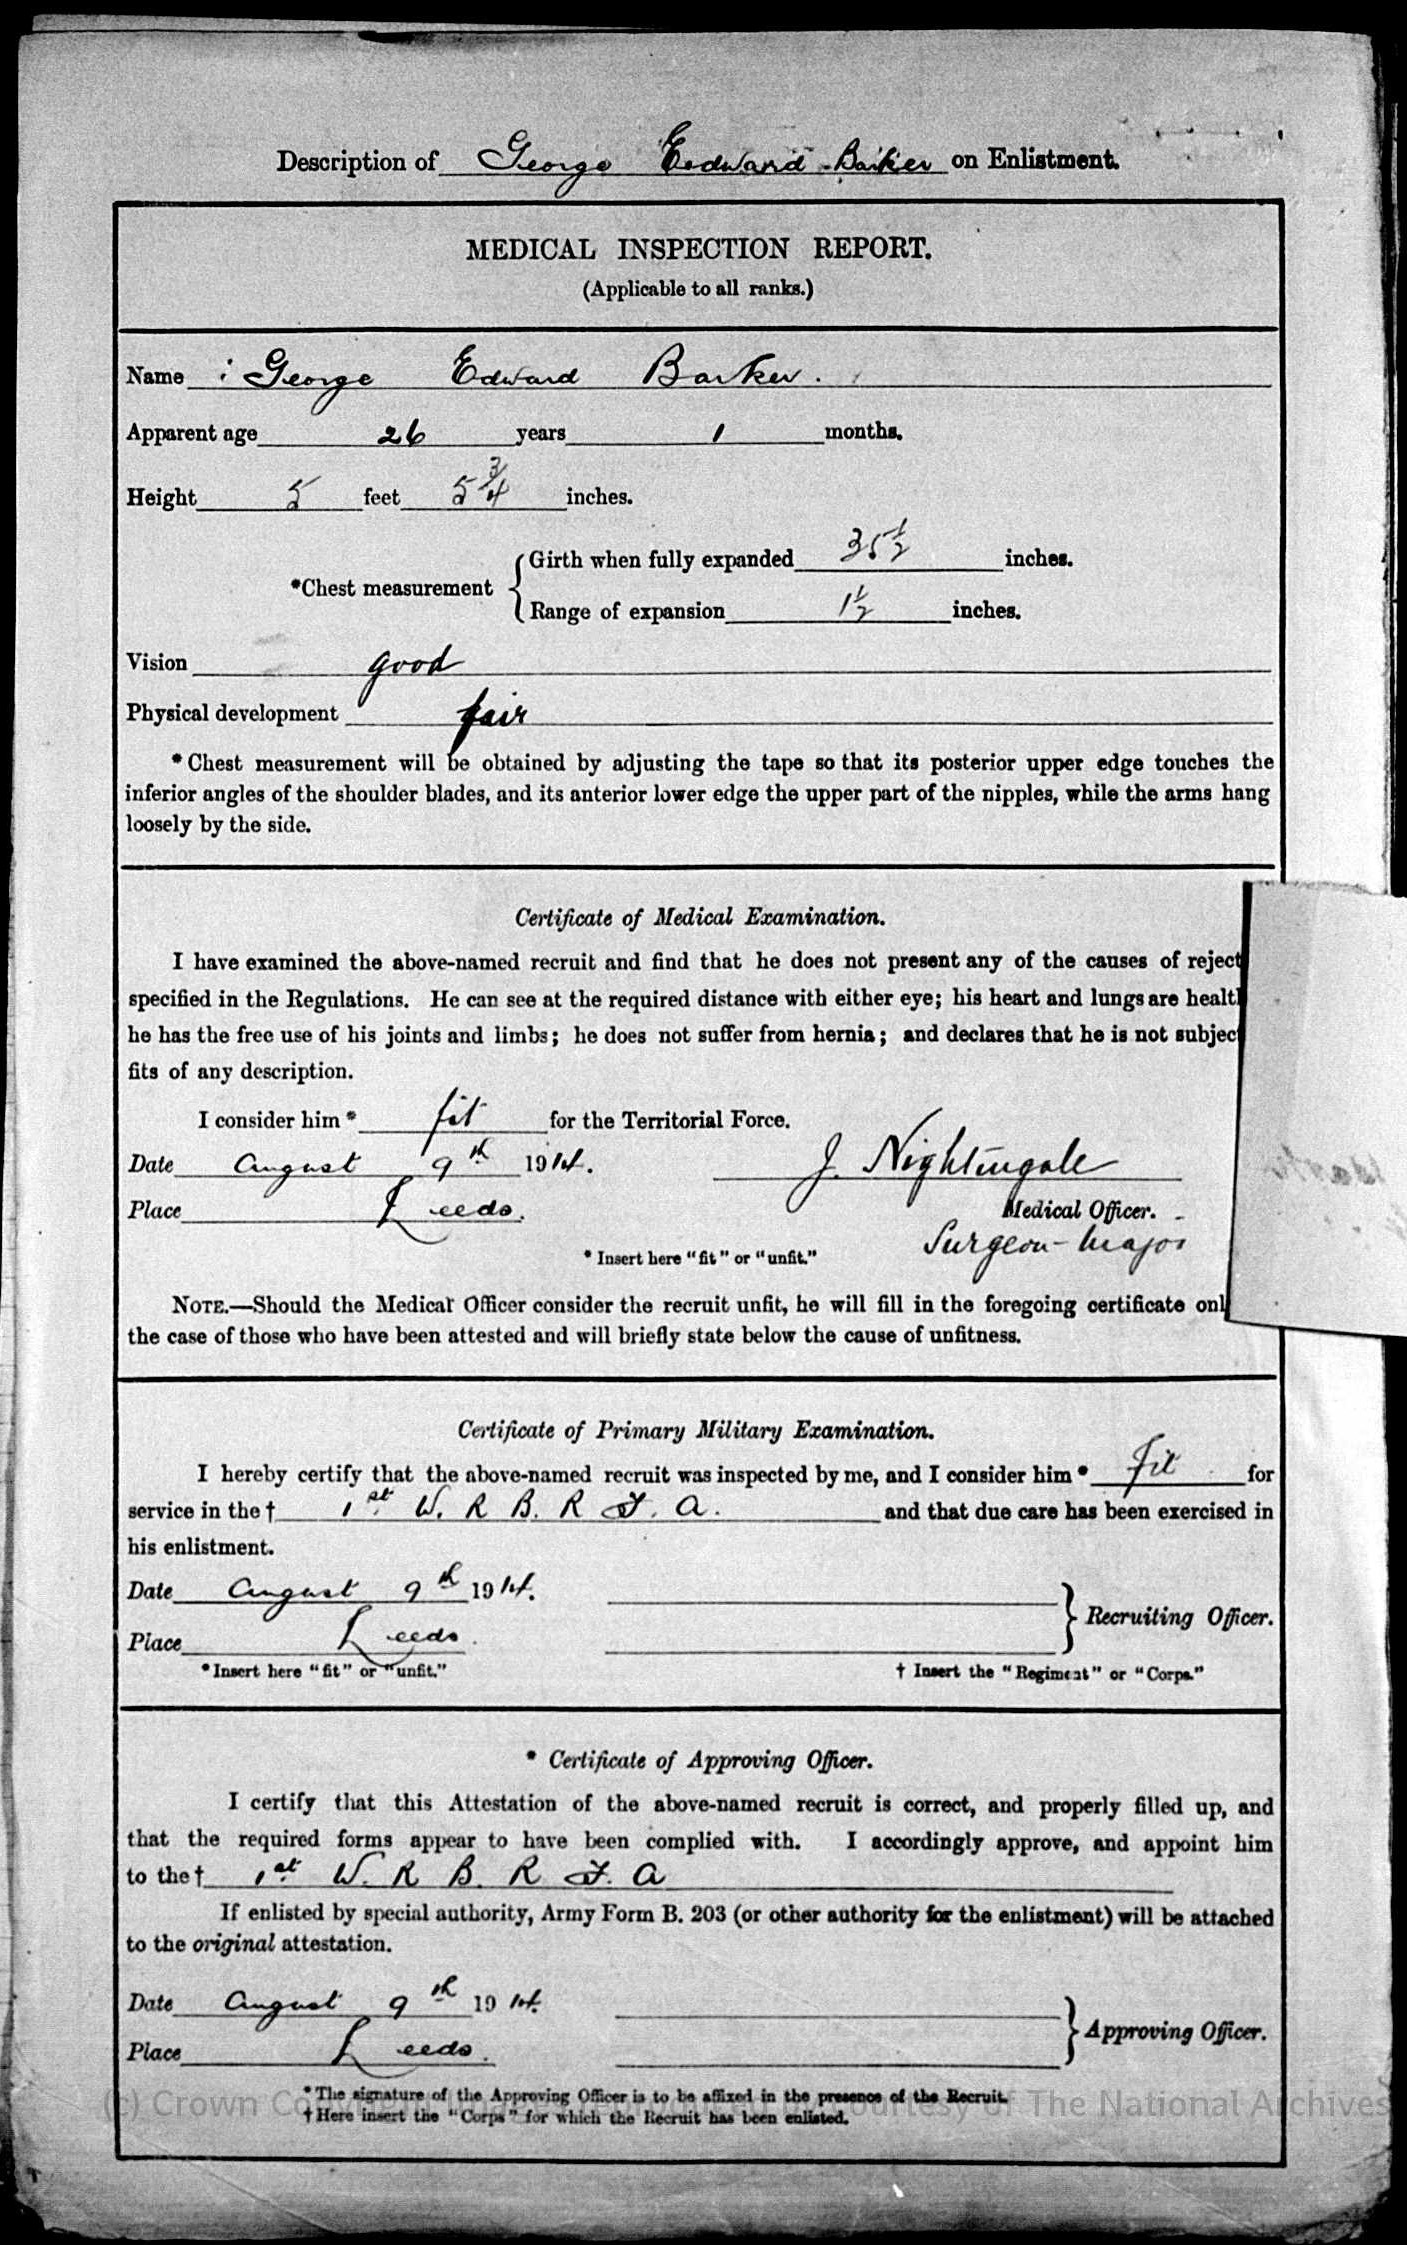 Description of George Eedward Barker on Enlistment.
MEDICAL INSPECTION REPORT.
(Applicable to all ranks.)
Name George Edward Barker.
Apparent age 26 years 1 months.
Height 5 feet 5 3/4 inches.
*Chest measurement { Girth when fully expanded 35 1/2 inches.
Range of expansion 1 1/2 inches.
Vision good
Physical development fair
* Chest measurement will be obtained by adjusting the tape so that its posterior upper edge touches the
inferior angles of the shoulder blades, and its anterior lower edge the upper part of the nipples, while the arms hang
loosely by the side.
Certificate of Medical Examination.
I have examined the above-named recruit and find that he does not present any of the causes of reject
specified in the Regulations. He can see at the required distance with either eye; his heart and lungs are healt
he has the free use of his joints and limbs; he does not suffer from hernia; and declares that he is not subject
fits of any description.
I consider him * fit for the Territorial Force.
Date August 9th 1914. J. Nightingale
Place Leeds. Medical Officer.
Surgeon-Major
* Insert here "fit" or "unfit."
NOTE.—Should the Medical Officer consider the recruit unfit, he will fill in the foregoing certificate onl
the case of those who have been attested and will briefly state below the cause of unfitness.
Certificate of Primary Military Examination.
I hereby certify that the above-named recruit was inspected by me, and I consider him * Fit for
service in the † 1st W. R B. R F. A. and that due care has been exercised in
his enlistment.
Date August 9th 1914.
} Recruiting Officer.
Place Leeds.
* Insert here "fit" or "unfit." † Insert the "Regiment" or "Corps."
* Certificate of Approving Officer.
I certify that this Attestation of the above-named recruit is correct, and properly filled up, and
that the required forms appear to have been complied with. I accordingly approve, and appoint him
to the † 1st W. R B. R F. A
If enlisted by special authority, Army Form B. 203 (or other authority for the enlistment) will be attached
to the original attestation.
Date August 9th 1914.
} Approving Officer.
Place Leeds.
* The signature of the Approving Officer is to be affixed in the presence of the Recruit.
(c) Crown Copyright Images reproduced by courtesy of The National Archives
† Here insert the "Corps" for which the Recruit has been enlisted.